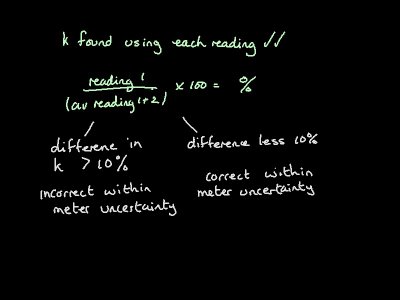 k found using each reading ✓✓
reading 1
(av reading 1+2) × 100 = %
difference in
k > 10%
incorrect within
meter uncertainty
difference less 10%
correct within
meter uncertainty